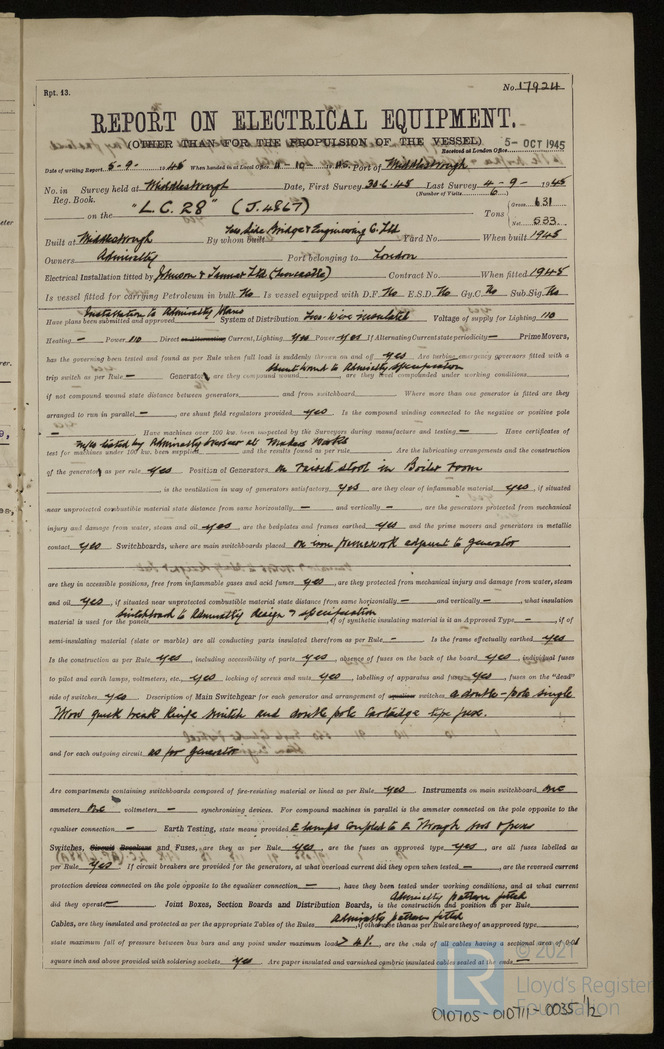 Rpt. 13.
No. 17924
REPORT ON ELECTRICAL EQUIPMENT.
(OTHER THAN FOR THE PROPULSION OF THE VESSEL)
Received at London Office 5- OCT 1945
Date of writing Report 5-9- 1945 When handed in at Local Office 11-10 1945 Port of Middlesbrough
No. in Survey held at Middlesbrough Date, First Survey 30-6-45 Last Survey 4-9- 1945
Reg. Book. (Number of Visits 6)
on the "L.C. 28" (J.4867) Tons { Gross 631
Net 533
Built at Middlesbrough By whom built Tees Side Bridge & Engineering Co. Ltd Yard No. When built 1945
Owners Admiralty Port belonging to London
Electrical Installation fitted by Johnson & Tanner Ltd Contract No. When fitted 1945
Is vessel fitted for carrying Petroleum in bulk No Is vessel equipped with D.F. No E.S.D. No Gy.C. No Sub.Sig. No
Installation to Admiralty Plans
Have plans been submitted and approved System of Distribution Two-wire insulated Voltage of supply for Lighting 110
Heating - Power 110 Direct or Alternating Current, Lighting Yes Power Yes If Alternating Current state periodicity - Prime Movers,
has the governing been tested and found as per Rule when full load is suddenly thrown on and off yes Are turbine emergency governors fitted with a
shunt wound to Admiralty specification
trip switch as per Rule - Generators, are they compound wound, are they level compounded under working conditions,
if not compound wound state distance between generators and from switchboard. Where more than one generator is fitted are they
arranged to run in parallel -, are shunt field regulators provided yes Is the compound winding connected to the negative or positive pole
- Have machines over 100 kw. been inspected by the Surveyors during manufacture and testing - Have certificates of
M/cs tested by Admiralty Overseer at Makers Works
test for machines under 100 kw. been supplied and the results found as per rule Are the lubricating arrangements and the construction
of the generators as per rule yes Position of Generators on raised stool in Boiler room
is the ventilation in way of generators satisfactory yes are they clear of inflammable material yes, if situated
near unprotected combustible material state distance from same horizontally - and vertically -, are the generators protected from mechanical
injury and damage from water, steam and oil yes, are the bedplates and frames earthed yes and the prime movers and generators in metallic
contact yes Switchboards, where are main switchboards placed on iron framework adjacent to generator
are they in accessible positions, free from inflammable gases and acid fumes yes, are they protected from mechanical injury and damage from water, steam
and oil yes, if situated near unprotected combustible material state distance from same horizontally - and vertically -, what insulation
switchboard to Admiralty design & specification
material is used for the panels, if of synthetic insulating material is it an Approved Type -, if of
semi-insulating material (slate or marble) are all conducting parts insulated therefrom as per Rule - Is the frame effectually earthed yes
Is the construction as per Rule yes, including accessibility of parts yes, absence of fuses on the back of the board yes, individual fuses
to pilot and earth lamps, voltmeters, etc. yes locking of screws and nuts yes, labelling of apparatus and fuses yes, fuses on the "dead"
side of switches yes Description of Main Switchgear for each generator and arrangement of equaliser switches a double-pole single
throw quick break knife switch and double pole cartridge type fuse.
and for each outgoing circuit as for generator
Are compartments containing switchboards composed of fire-resisting material or lined as per Rule yes Instruments on main switchboard one
ammeters one voltmeters - synchronising devices. For compound machines in parallel is the ammeter connected on the pole opposite to the
equaliser connection - Earth Testing, state means provided 2 lamps coupled to E through sws & fuses
Switches, Circuit Breakers and Fuses, are they as per Rule yes, are the fuses an approved type yes, are all fuses labelled as
per Rule yes If circuit breakers are provided for the generators, at what overload current did they open when tested -, are the reversed current
protection devices connected on the pole opposite to the equaliser connection -, have they been tested under working conditions, and at what current
Admiralty pattern fitted
did they operate - Joint Boxes, Section Boards and Distribution Boards, is the construction and position as per Rule
Admiralty pattern fitted
Cables, are they insulated and protected as per the appropriate Tables of the Rules, if otherwise than as per Rule are they of an approved type,
state maximum fall of pressure between bus bars and any point under maximum load > 4%, are the ends of all cables having a sectional area of 0.01
square inch and above provided with soldering sockets yes Are paper insulated and varnished cambric insulated cables sealed at the ends -
© 2021
LR
Lloyd's Register
Foundation
010705-010711-0035 1/2